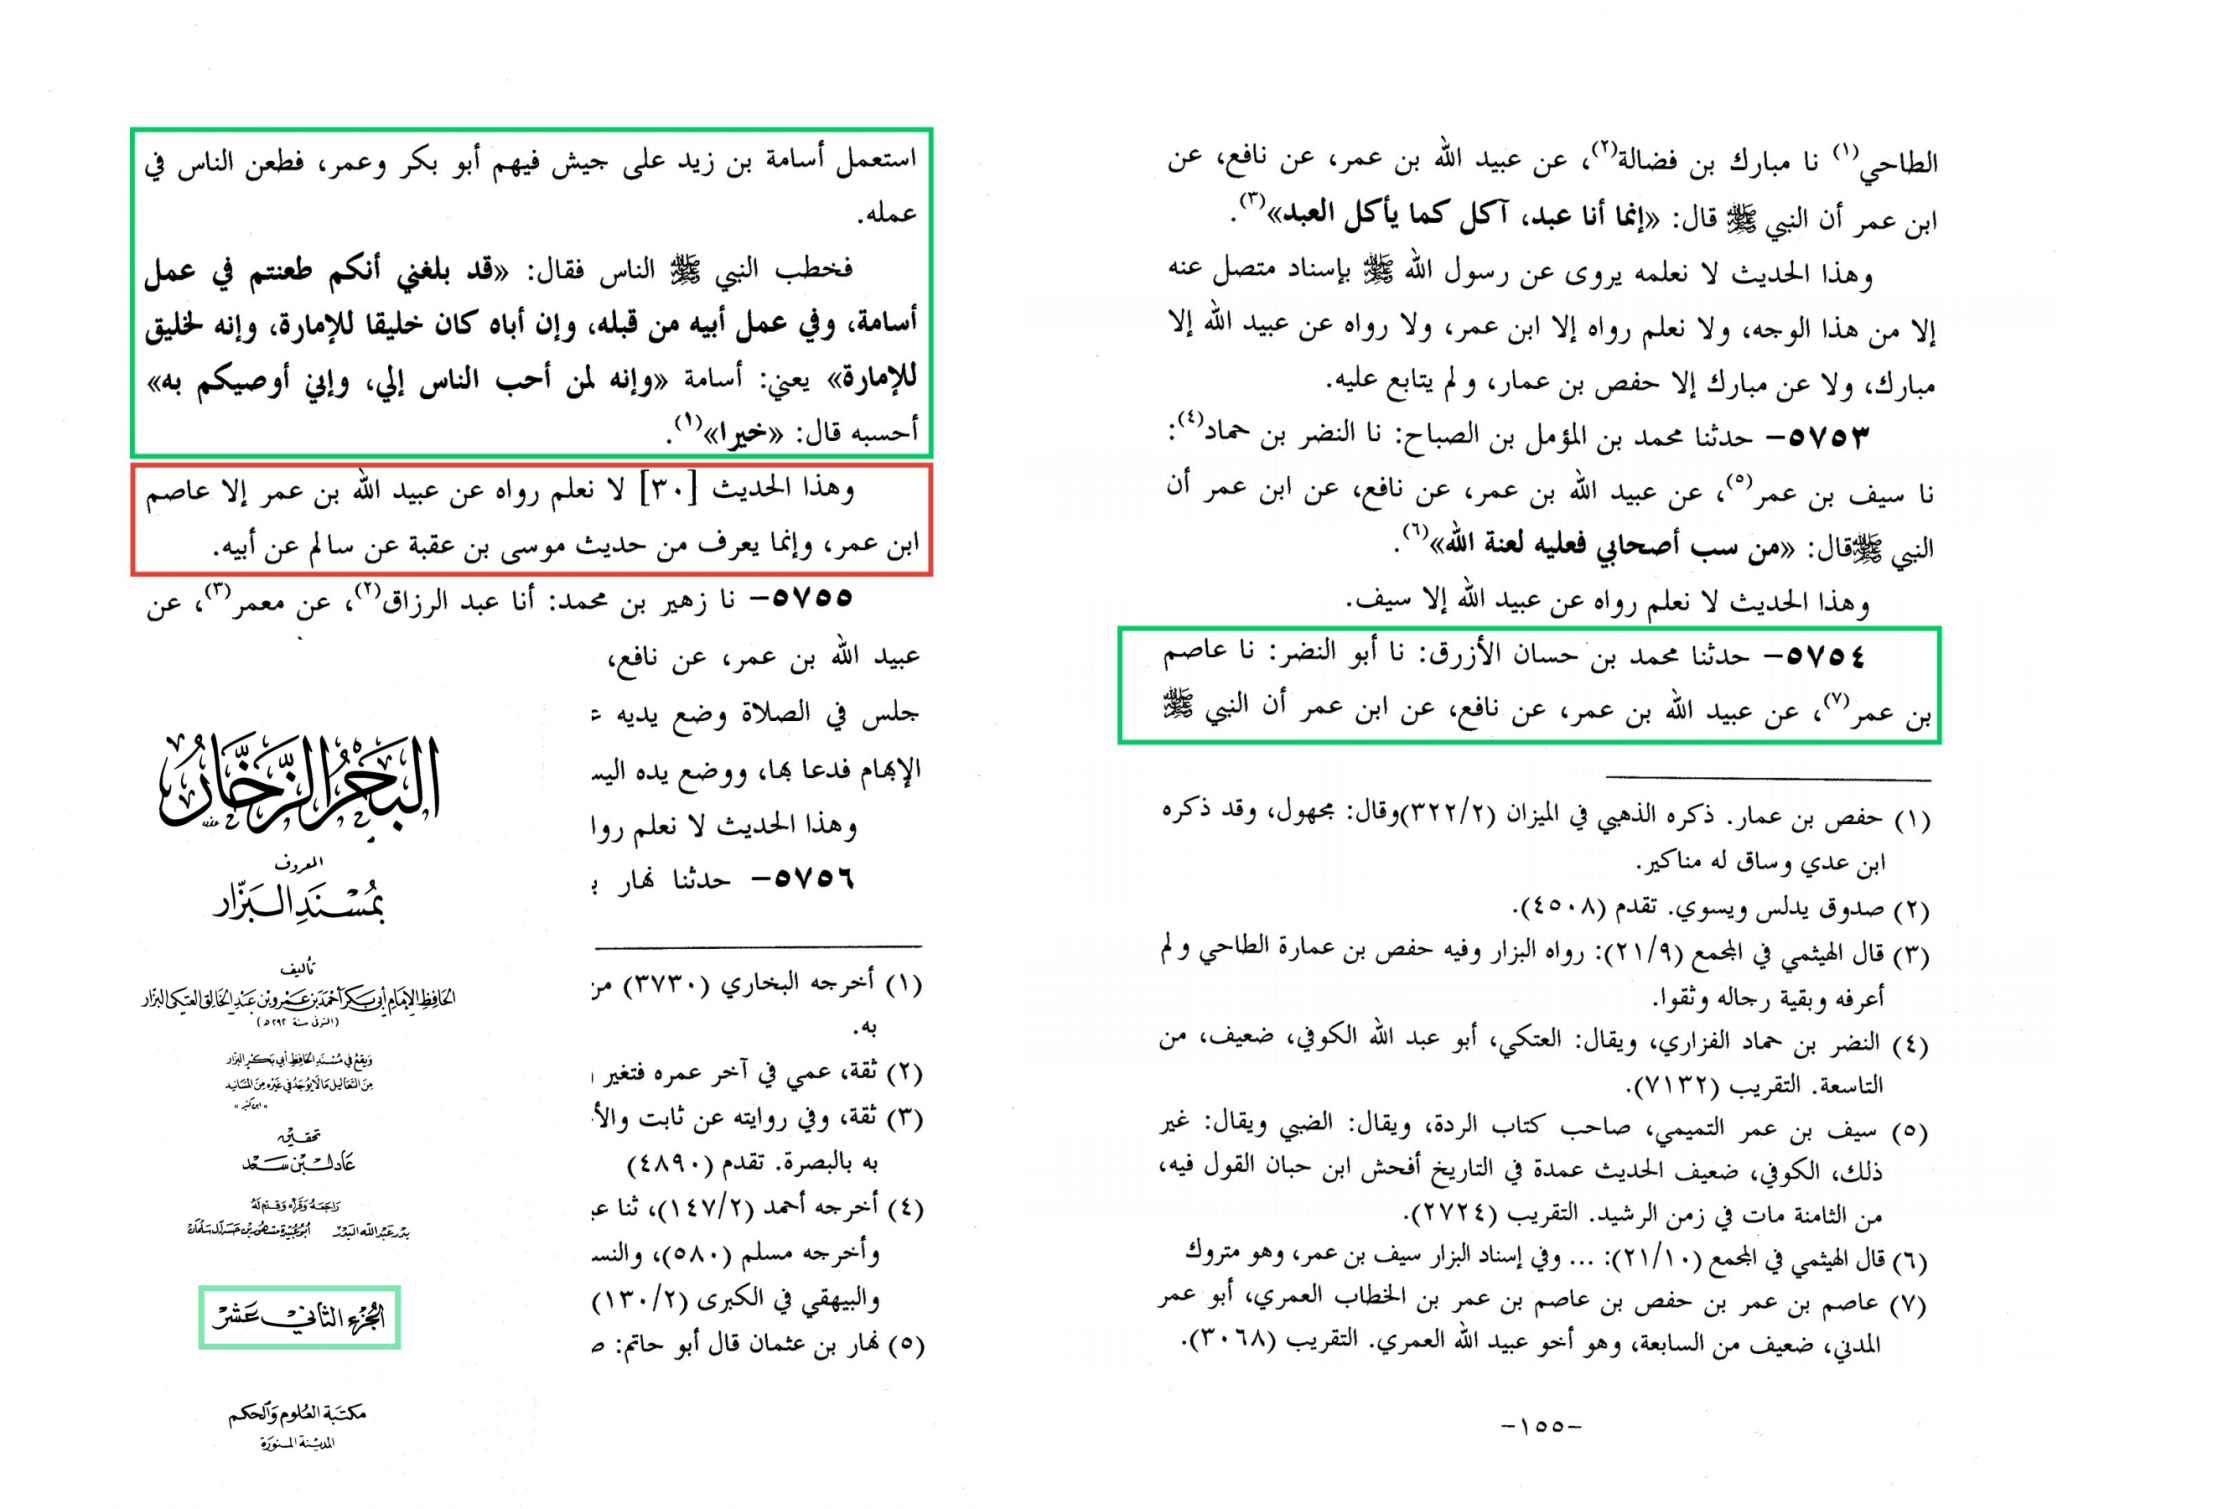 الطاحي(١) نا مبارك بن فضالة(٢)، عن عبيد الله بن عمر، عن نافع، عن
ابن عمر أن النبي ﷺ قال: «إنما أنا عبد، آكل كما يأكل العبد»(٣).
وهذا الحديث لا نعلمه يروى عن رسول الله ﷺ بإسناد متصل عنه
إلا من هذا الوجه، ولا نعلم رواه إلا ابن عمر، ولا رواه عن عبيد الله إلا
مبارك، ولا عن مبارك إلا حفص بن عمار، ولم يتابع عليه.
٥٧٥٣– حدثنا محمد بن المؤمل بن الصباح: نا النضر بن حماد(٤):
نا سيف بن عمر(٥)، عن عبيد الله بن عمر، عن نافع، عن ابن عمر أن
النبي ﷺ قال: «من سب أصحابي فعليه لعنة الله»(٦).
وهذا الحديث لا نعلم رواه عن عبيد الله إلا سيف.
٥٧٥٤– حدثنا محمد بن حسان الأزرق: نا أبو النضر: نا عاصم
بن عمر(٧)، عن عبيد الله بن عمر، عن نافع، عن ابن عمر أن النبي ﷺ
(١) حفص بن عمار. ذكره الذهبي في الميزان (٣٢٢/٢)وقال: مجهول، وقد ذكره
ابن عدي وساق له مناكير.
(٢) صدوق يدلس ويسوي. تقدم (٤٥٠٨).
(٣) قال الهيثمي في المجمع (٢١/٩): رواه البزار وفيه حفص بن عمارة الطاحي ولم
أعرفه وبقية رجاله وثقوا.
(٤) النضر بن حماد الفزاري، ويقال: العتكي، أبو عبد الله الكوفي، ضعيف، من
التاسعة. التقريب (٧١٣٢).
(٥) سيف بن عمر التميمي، صاحب كتاب الردة، ويقال: الضبي ويقال: غير
ذلك، الكوفي، ضعيف الحديث عمدة في التاريخ أفحش ابن حبان القول فيه،
من الثامنة مات في زمن الرشيد. التقريب (٢٧٢٤).
(٦) قال الهيثمي في المجمع (٢١/١٠): ... وفي إسناد البزار سيف بن عمر، وهو متروك
(٧) عاصم بن عمر بن حفص بن عاصم بن عمر بن الخطاب العمري، أبو عمر
المدني، ضعيف من السابعة، وهو أخو عبيد الله العمري. التقريب (٣٠٦٨).
–١٥٥–
استعمل أسامة بن زيد على جيش فيهم أبو بكر وعمر، فطعن الناس في
عمله.
فخطب النبي ﷺ الناس فقال: «قد بلغني أنكم طعنتم في عمل
أسامة، وفي عمل أبيه من قبله، وإن أباه كان خليقا للإمارة، وإنه لخليق
للإمارة» يعني: أسامة «وإنه لمن أحب الناس إلي، وإني أوصيكم به»
أحسبه قال: «خيرا»(١).
وهذا الحديث [٣٠] لا نعلم رواه عن عبيد الله بن عمر إلا عاصم
ابن عمر، وإنما يعرف من حديث موسى بن عقبة عن سالم عن أبيه.
٥٧٥٥– نا زهير بن محمد: أنا عبد الرزاق(٢)، عن معمر(٣)، عن
عبيد الله بن عمر، عن نافع،
جلس في الصلاة وضع يديه
الإبهام فدعا بها، ووضع يده
وهذا الحديث لا نعلم
٥٧٥٦– حدثنا نهار
(١) أخرجه البخاري (٣٧٣٠)
به.
(٢) ثقة، عمي في آخر عمره فتغير
(٣) ثقة، وفي روايته عن ثابت
به بالبصرة. تقدم (٤٨٩٠)
(٤) أخرجه أحمد (١٤٧/٢)، ثنا
وأخرجه مسلم (٥٨٠)،
والبيهقي في الكبرى (١٣٠/٢)
(٥) نهار بن عثمان قال أبو حاتم:
البحر الزخار
المعروف
بمسند البزار
تأليف
الحافظ الإمام أبي بكر أحمد بن عمرو بن عبد الخالق العتكي البزار
(المتوفى سنة ٢٩٢ هـ)
ويقع في مسند الحافظ أبي بكر البزار
من التعاليل ما لا يوجد في غيره من المسانيد
"ابن كثير"
تحقيق
عادل بن سعد
راجعه وقرأه وقدم له
بدر عبد الله البدر أبو عبيدة مشهور بن حسن آل سلمان
الجزء الثاني عشر
مكتبة العلوم والحكم
المدينة المنورة